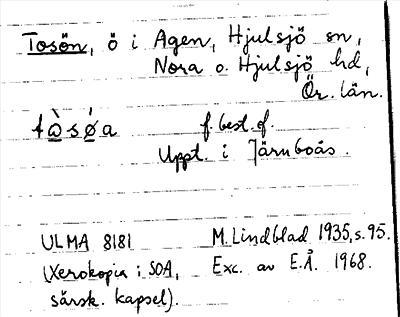 Tosön, ö i Agen, Hjulsjö sn,
Nora o. Hjulsjö hd,
Ör. län.
tὼsǿa f. best. f.
Uppt. i Järnboås.
ULMA 8181 M. Lindblad 1935, s. 95.
(Xerokopia i SOA, Exc. av E.Å. 1968.
särsk. kapsel).